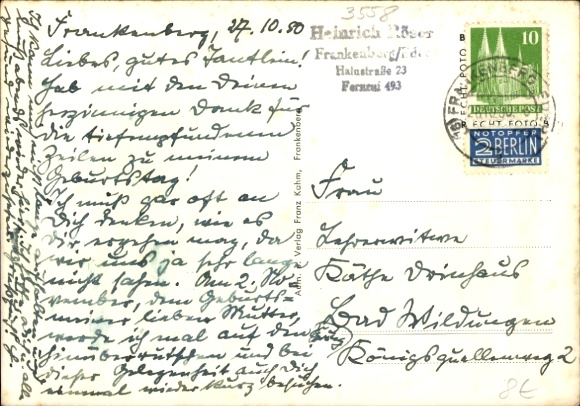 Frankenberg, 27.10.50
Liebes, gutes Tantlein!
Hab mit den Deinen
herzinnigen Dank für
die tiefempfundenen
Zeilen zu meinem
Geburtstag!
Ich muß gar oft an
Dich denken, wie es
Dir ergehen mag, da
wir uns ja sehr lange
nicht sahen. Am 2. No-
vember, dem Geburts-
meiner lieben Mutter,
werde ich mal auf den
hinüberrutschen und bei
dieser Gelegenheit auch Dich
einmal wieder kurz besuchen.
3558
Heinrich Röser
Frankenberg/Eder
Hainstraße 23
Fernruf 493
10
DEUTSCHE POST
NOTOPFER
2 BERLIN
STEUERMARKE
ECHT FOTO
Aufn. u. Verlag Franz Kahm, Frankenberg
Frau
Lehrerwitwe
Käthe Drinhaus
Bad Wildungen
Königsquellenweg 2
8€